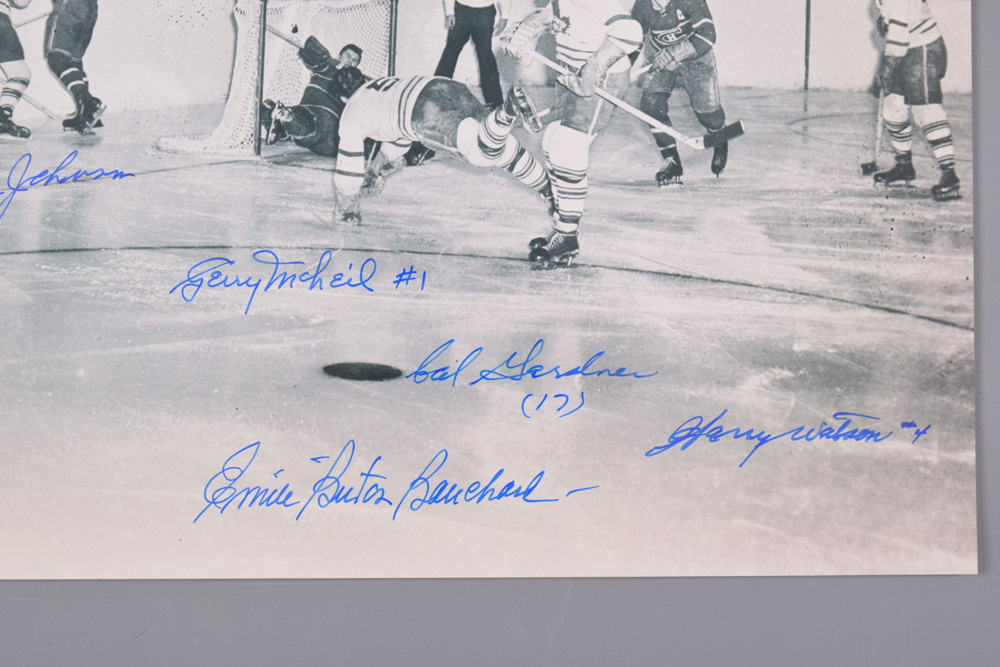 Johnson
Gerry McNeil #1
Cal Gardner
(17)
Harry Watson #4
Emile "Butch" Bouchard -